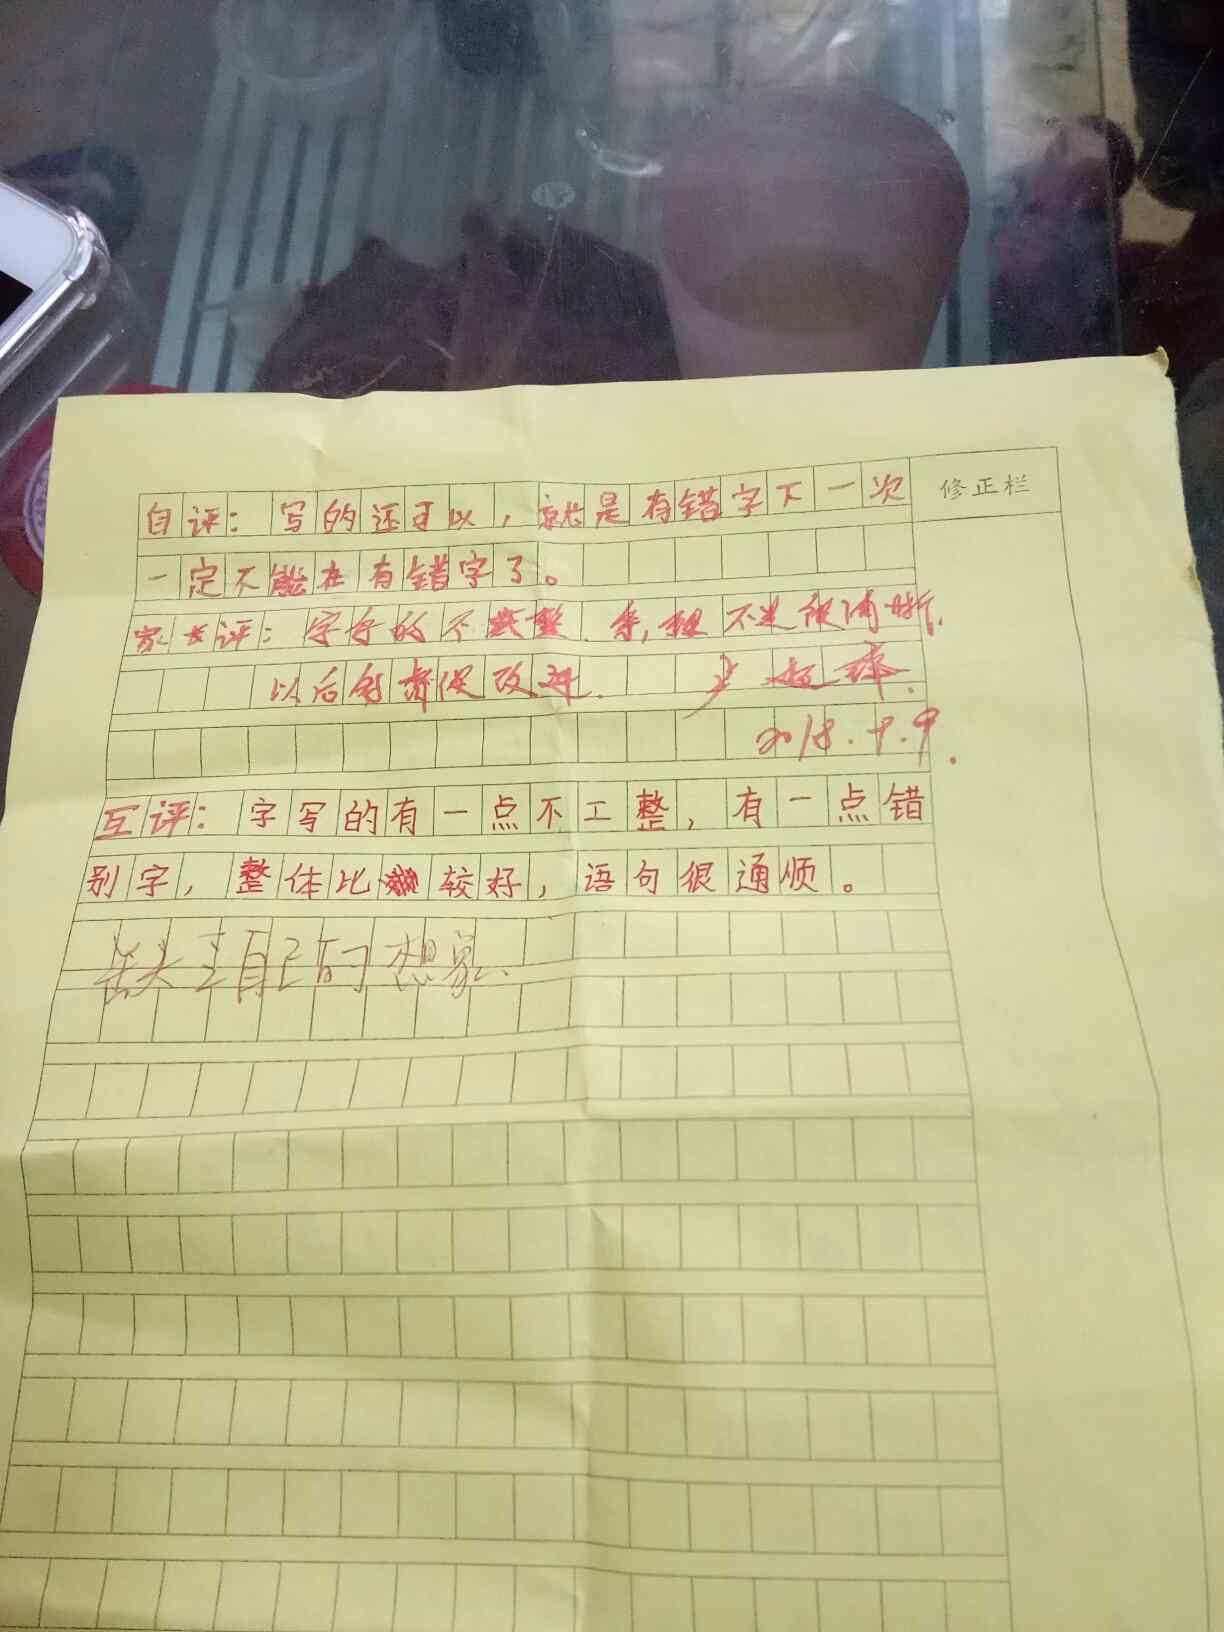 自评：写的还可以，就是有错字下一次
修正栏
一定不能在有错字了。
家长评：字写的不整，不是很清晰，
以后多督促改进.
2018.9.9.
互评：字写的有一点不工整，有一点错
别字，整体比较好，语句很通顺。
缺乏自己的想象.